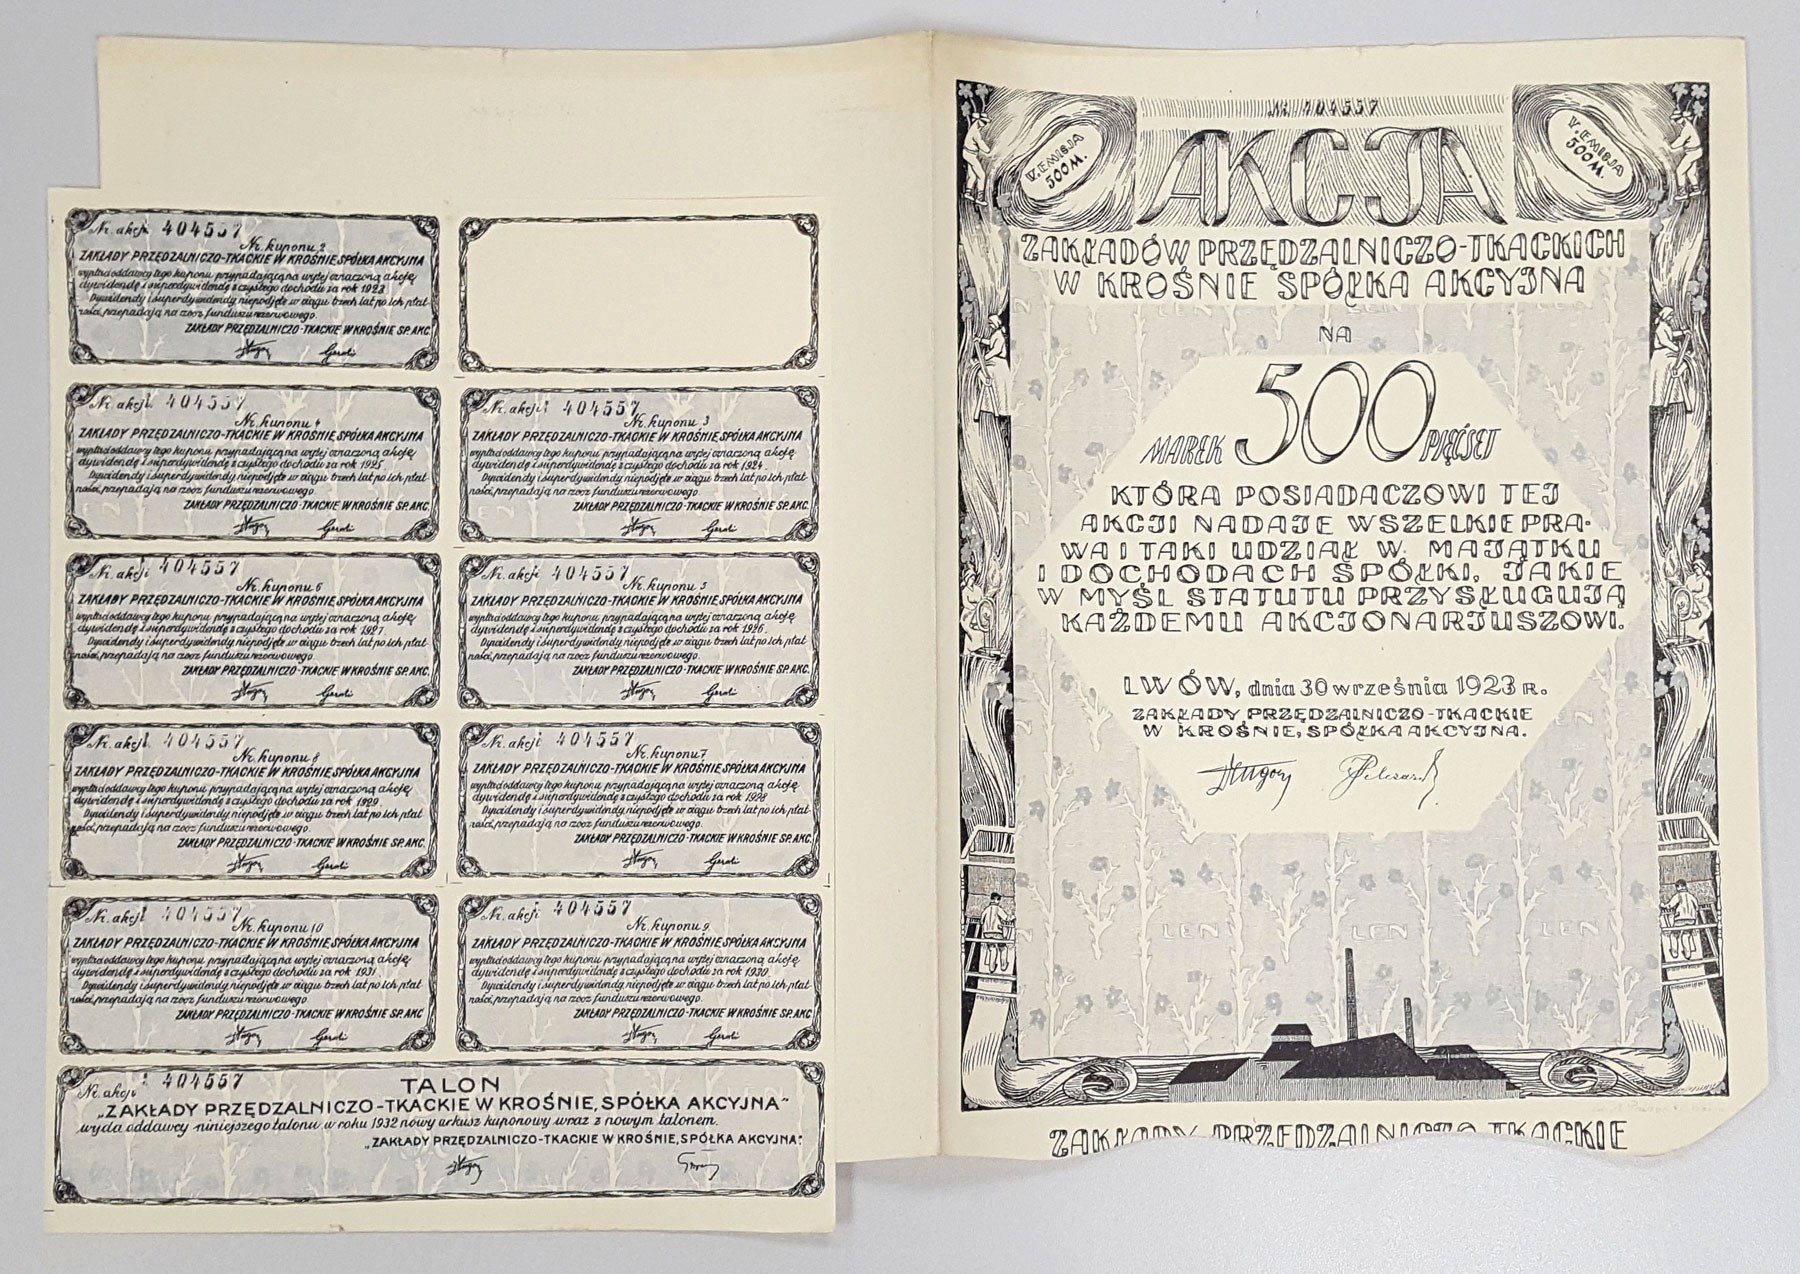 Nr. akcji 404557
Nr. kuponu 2
ZAKŁADY PRZĘDZALNICZO-TKACKIE W KROŚNIE, SPÓŁKA AKCYJNA
wypłaci oddawcy tego kuponu przypadającą na wyżej oznaczoną akcję
dywidendę i superdywidendę z czystego dochodu za rok 1923.
Dywidendy i superdywidendy niepodjęte w ciągu trzech lat po ich płat-
ności, przepadają na rzecz funduszu rezerwowego.
ZAKŁADY PRZĘDZALNICZO-TKACKIE W KROŚNIE SP. AKC.
Nr. akcji 404557
Nr. kuponu 4
ZAKŁADY PRZĘDZALNICZO-TKACKIE W KROŚNIE, SPÓŁKA AKCYJNA
wypłaci oddawcy tego kuponu przypadającą na wyżej oznaczoną akcję
dywidendę i superdywidendę z czystego dochodu za rok 1925
Dywidendy i superdywidendy niepodjęte w ciągu trzech lat po ich płat-
ności, przepadają na rzecz funduszu rezerwowego.
ZAKŁADY PRZĘDZALNICZO-TKACKIE W KROŚNIE SP. AKC.
Nr. akcji 404557
Nr. kuponu 3
ZAKŁADY PRZĘDZALNICZO-TKACKIE W KROŚNIE, SPÓŁKA AKCYJNA
wypłaci oddawcy tego kuponu przypadającą na wyżej oznaczoną akcję
dywidendę i superdywidendę z czystego dochodu za rok 1924.
Dywidendy i superdywidendy niepodjęte w ciągu trzech lat po ich płat-
ności, przepadają na rzecz funduszu rezerwowego.
ZAKŁADY PRZĘDZALNICZO-TKACKIE W KROŚNIE SP. AKC.
Nr. akcji 404557
Nr. kuponu 6
ZAKŁADY PRZĘDZALNICZO-TKACKIE W KROŚNIE, SPÓŁKA AKCYJNA
wypłaci oddawcy tego kuponu przypadającą na wyżej oznaczoną akcję
dywidendę i superdywidendę z czystego dochodu za rok 1927.
Dywidendy i superdywidendy niepodjęte w ciągu trzech lat po ich płat-
ności, przepadają na rzecz funduszu rezerwowego.
ZAKŁADY PRZĘDZALNICZO-TKACKIE W KROŚNIE SP. AKC.
Nr. akcji 404557
Nr. kuponu 5
ZAKŁADY PRZĘDZALNICZO-TKACKIE W KROŚNIE, SPÓŁKA AKCYJNA
wypłaci oddawcy tego kuponu przypadającą na wyżej oznaczoną akcję
dywidendę i superdywidendę z czystego dochodu za rok 1926.
Dywidendy i superdywidendy niepodjęte w ciągu trzech lat po ich płat-
ności, przepadają na rzecz funduszu rezerwowego.
ZAKŁADY PRZĘDZALNICZO-TKACKIE W KROŚNIE SP. AKC.
Nr. akcji 404557
Nr. kuponu 8
ZAKŁADY PRZĘDZALNICZO-TKACKIE W KROŚNIE, SPÓŁKA AKCYJNA
wypłaci oddawcy tego kuponu przypadającą na wyżej oznaczoną akcję
dywidendę i superdywidendę z czystego dochodu za rok 1929.
Dywidendy i superdywidendy niepodjęte w ciągu trzech lat po ich płat-
ności, przepadają na rzecz funduszu rezerwowego.
ZAKŁADY PRZĘDZALNICZO-TKACKIE W KROŚNIE SP. AKC.
Nr. akcji 404557
Nr. kuponu 7
ZAKŁADY PRZĘDZALNICZO-TKACKIE W KROŚNIE, SPÓŁKA AKCYJNA
wypłaci oddawcy tego kuponu przypadającą na wyżej oznaczoną akcję
dywidendę i superdywidendę z czystego dochodu za rok 1928
Dywidendy i superdywidendy niepodjęte w ciągu trzech lat po ich płat-
ności, przepadają na rzecz funduszu rezerwowego.
ZAKŁADY PRZĘDZALNICZO-TKACKIE W KROŚNIE SP. AKC.
Nr. akcji 404557
Nr. kuponu 10
ZAKŁADY PRZĘDZALNICZO-TKACKIE W KROŚNIE, SPÓŁKA AKCYJNA
wypłaci oddawcy tego kuponu przypadającą na wyżej oznaczoną akcję
dywidendę i superdywidendę z czystego dochodu za rok 1931.
Dywidendy i superdywidendy niepodjęte w ciągu trzech lat po ich płat-
ności, przepadają na rzecz funduszu rezerwowego.
ZAKŁADY PRZĘDZALNICZO-TKACKIE W KROŚNIE SP. AKC.
Nr. akcji 404557
Nr. kuponu 9
ZAKŁADY PRZĘDZALNICZO-TKACKIE W KROŚNIE, SPÓŁKA AKCYJNA
wypłaci oddawcy tego kuponu przypadającą na wyżej oznaczoną akcję
dywidendę i superdywidendę z czystego dochodu za rok 1930.
Dywidendy i superdywidendy niepodjęte w ciągu trzech lat po ich płat-
ności, przepadają na rzecz funduszu rezerwowego.
ZAKŁADY PRZĘDZALNICZO-TKACKIE W KROŚNIE SP. AKC.
Nr. akcji 404557
TALON
„ZAKŁADY PRZĘDZALNICZO-TKACKIE W KROŚNIE, SPÓŁKA AKCYJNA"
wyda oddawcy niniejszego talonu w roku 1932 nowy arkusz kuponowy wraz z nowym talonem.
„ZAKŁADY PRZĘDZALNICZO-TKACKIE W KROŚNIE, SPÓŁKA AKCYJNA".
Nr. 404557
V. EMISJA
500 M.
AKCJA
V. EMISJA
500 M.
ZAKŁADÓW PRZĘDZALNICZO-TKACKICH
W KROŚNIE SPÓŁKA AKCYJNA
NA
MAREK 500 PIĘĆSET
KTÓRA POSIADACZOWI TEJ
AKCJI NADAJE WSZELKIE PRA-
WA I TAKI UDZIAŁ W MAJĄTKU
I DOCHODACH SPÓŁKI, JAKIE
W MYŚL STATUTU PRZYSŁUGUJĄ
KAŻDEMU AKCJONARJUSZOWI.
LWÓW, dnia 30 września 1923 R.
ZAKŁADY PRZĘDZALNICZO-TKACKIE
W KROŚNIE, SPÓŁKA AKCYJNA.
LEN LEN LEN
ZAKŁADY PRZĘDZALNICZO TKACKIE